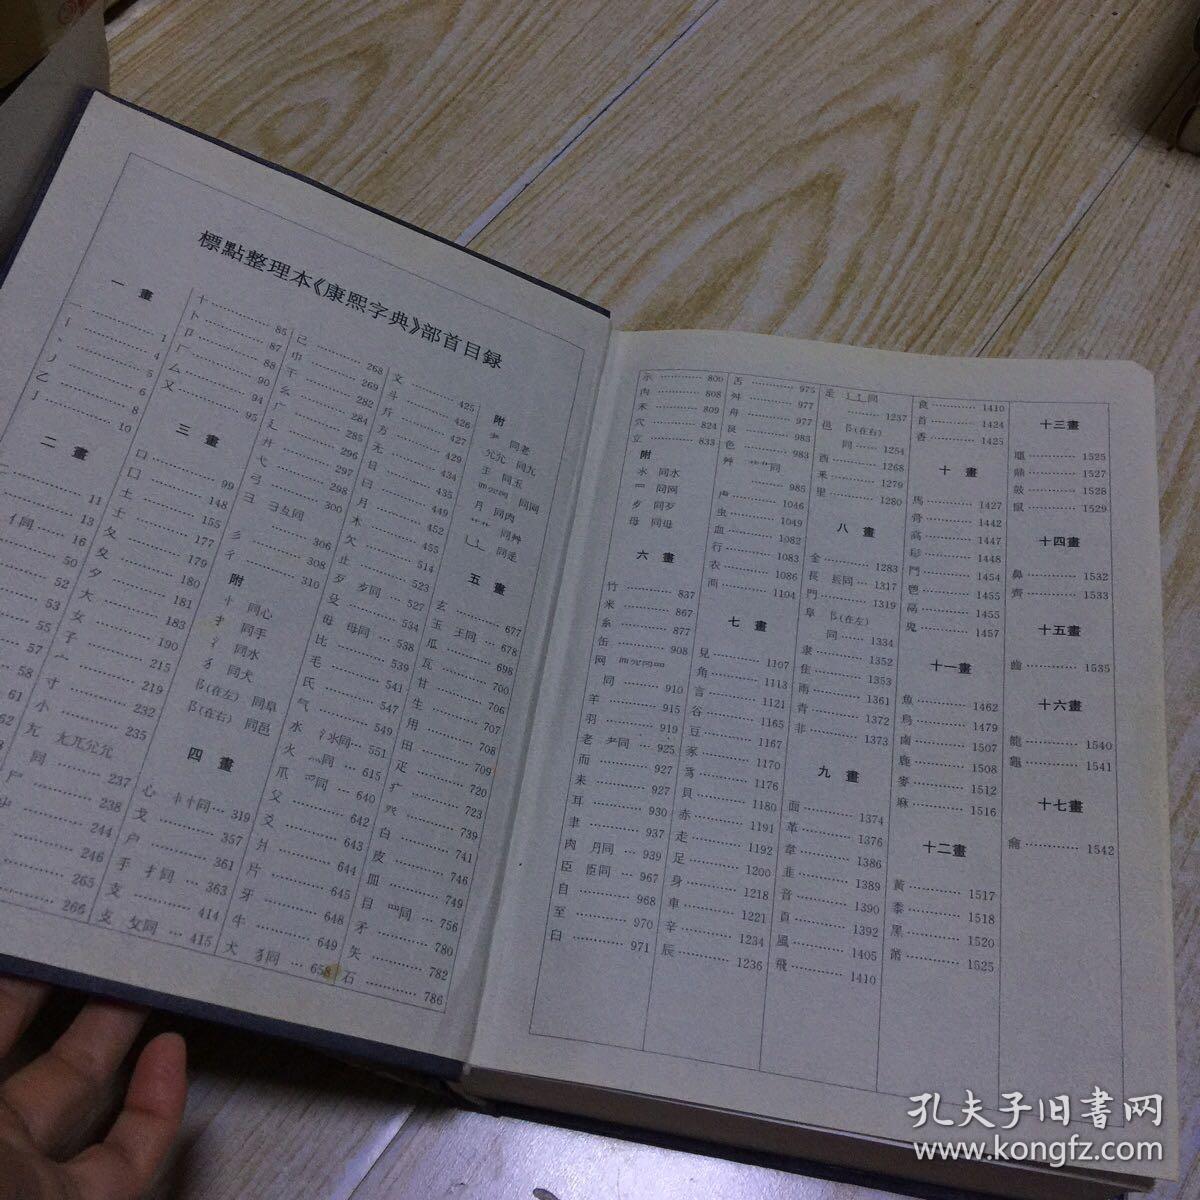 標點整理本《康熙字典》部首目録
一畫
一 ………… 1
丨 ………… 4
丶 ………… 5
丿 ………… 6
乙 ………… 8
亅 ………… 10
二畫
11
13
亻同 16
50
52
53
55
57
58
61
十 ………… 85
卜 ………… 87
卩 ………… 88
厂 ………… 90
厶 ………… 94
又 ………… 95
三畫
口 ………… 99
囗 ………… 148
土 ………… 155
士 ………… 177
夂 ………… 179
夊 ………… 180
夕 ………… 181
大 ………… 183
女 ………… 190
子 ………… 215
宀 ………… 219
寸 ………… 232
小 ………… 235
尢 尣兀允兊
同 ………… 237
尸 ………… 238
屮 ………… 244
246
265
266
己 ………… 268
巾 ………… 269
干 ………… 282
幺 ………… 284
广 ………… 285
廴 ………… 296
廾 ………… 297
弋 ………… 298
弓 ………… 300
彐 彐彑同
………… 306
彡 ………… 308
彳 ………… 310
附
忄 同心
扌 同手
氵 同水
犭 同犬
阝(在左) 同阜
阝(在右) 同邑
四畫
心 忄㣺同 … 319
戈 ………… 357
户 ………… 361
手 扌同 … 363
支 ………… 414
攴 攵同 … 415
文 ………… 425
斗 ………… 426
斤 ………… 427
方 ………… 429
无 ………… 434
日 ………… 435
曰 ………… 449
月 ………… 452
木 ………… 455
欠 ………… 514
止 ………… 523
歹 歺同 … 527
殳 ………… 534
毋 母同 … 538
比 ………… 539
毛 ………… 541
氏 ………… 547
气 ………… 549
水 氵氺同 … 551
火 灬同 … 615
爪 爫同 … 640
父 ………… 642
爻 ………… 643
爿 ………… 644
片 ………… 645
牙 ………… 648
牛 ………… 649
犬 犭同 … 658
附
耂 同老
同尢
王 同玉
同网
月 同肉
艹 同艸
辶 同辵
五畫
玄 ………… 677
玉 王同 … 678
瓜 ………… 698
瓦 ………… 700
甘 ………… 706
生 ………… 707
用 ………… 708
田 ………… 709
疋 ………… 720
疒 ………… 724
癶 ………… 739
白 ………… 741
皮 ………… 746
皿 ………… 749
目 罒同 … 756
矛 ………… 780
矢 ………… 782
石 ………… 786
示 ………… 800
禸 ………… 808
禾 ………… 809
穴 ………… 824
立 ………… 833
附
氺 同水
罒 同网
歺 同歹
母 同毋
六畫
竹 ………… 837
米 ………… 867
糸 ………… 877
缶 ………… 908
网
同 ………… 910
羊 ………… 915
羽 ………… 919
老 耂同 … 925
而 ………… 927
耒 ………… 927
耳 ………… 930
聿 ………… 937
肉 月同 … 939
臣 臣同 … 967
自 ………… 968
至 ………… 970
臼 ………… 971
舌 ………… 975
舛 ………… 977
舟 ………… 977
艮 ………… 983
色 ………… 983
艸 艹同
………… 985
虍 ………… 1046
虫 ………… 1049
血 ………… 1082
行 ………… 1083
衣 ………… 1086
襾 ………… 1104
七畫
見 ………… 1107
角 ………… 1113
言 ………… 1121
谷 ………… 1165
豆 ………… 1167
豕 ………… 1170
豸 ………… 1176
貝 ………… 1180
赤 ………… 1191
走 ………… 1192
足 ………… 1200
身 ………… 1218
車 ………… 1221
辛 ………… 1234
辰 ………… 1236
辵 辶同
………… 1237
邑 阝(在右)
同 ………… 1254
酉 ………… 1268
釆 ………… 1279
里 ………… 1280
八畫
金 ………… 1283
長 镸同 … 1317
門 ………… 1319
阜 阝(在左)
同 ………… 1334
隶 ………… 1352
隹 ………… 1353
雨 ………… 1361
青 ………… 1372
非 ………… 1373
九畫
面 ………… 1374
革 ………… 1376
韋 ………… 1386
韭 ………… 1389
音 ………… 1390
頁 ………… 1392
風 ………… 1405
飛 ………… 1410
食 ………… 1410
首 ………… 1424
香 ………… 1425
十畫
馬 ………… 1427
骨 ………… 1442
高 ………… 1447
髟 ………… 1448
鬥 ………… 1454
鬯 ………… 1455
鬲 ………… 1455
鬼 ………… 1457
十一畫
魚 ………… 1462
鳥 ………… 1479
鹵 ………… 1507
鹿 ………… 1508
麥 ………… 1512
麻 ………… 1516
十二畫
黄 ………… 1517
黍 ………… 1518
黑 ………… 1520
黹 ………… 1525
十三畫
黽 ………… 1525
鼎 ………… 1527
鼓 ………… 1528
鼠 ………… 1529
十四畫
鼻 ………… 1532
齊 ………… 1533
十五畫
齒 ………… 1535
十六畫
龍 ………… 1540
龜 ………… 1541
十七畫
龠 ………… 1542
孔夫子旧書网
www.kongfz.com